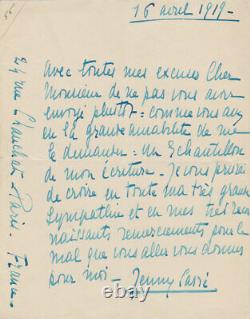 16 avril 1919-
Avec toutes mes excuses Cher
Monsieur de ne pas vous avoir
envoyé plustot - comme vous avez
eu la grande amabilité de me
le demander - un Echantillon
de mon écriture. Je vous prie
de croire en toute ma très grande
Sympathie et en mes très
naissants remerciements pour le
mal que vous allez vous donner
pour moi -
24 rue - Paris - France -